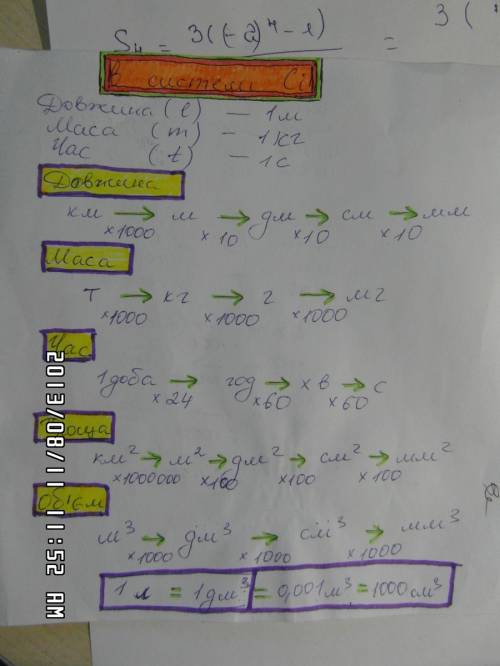 S₄ = 3((-2)⁴ - 1) = 3(
В системі Сі
Довжина (l) — 1м
Маса (m) — 1кг
Час (t) — 1с
Довжина
км → м → дм → см → мм
×1000 ×10 ×10 ×10
Маса
т → кг → г → мг
×1000 ×1000 ×1000
Час
1доба → год → хв → с
×24 ×60 ×60
Площа
км² → м² → дм² → см² → мм²
×1000000 ×100 ×100 ×100
Об'єм
м³ → дм³ → см³ → мм³
×1000 ×1000 ×1000
1л = 1дм³ = 0,001м³ = 1000см³
2013/08/11 11:52 AM